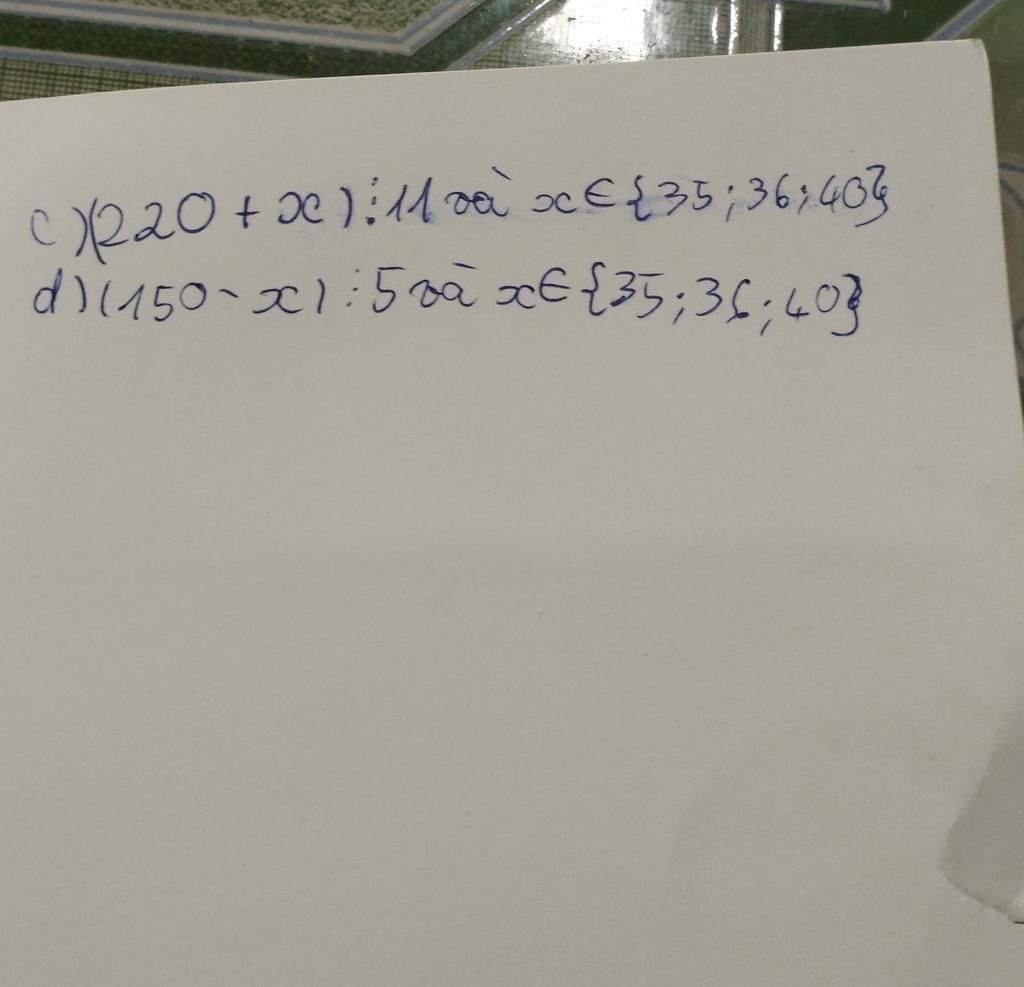 c)(220 + x) ⋮ 11 và x ∈ {35; 36; 40}
d)(150 - x) ⋮ 5 và x ∈ {35; 36; 40}